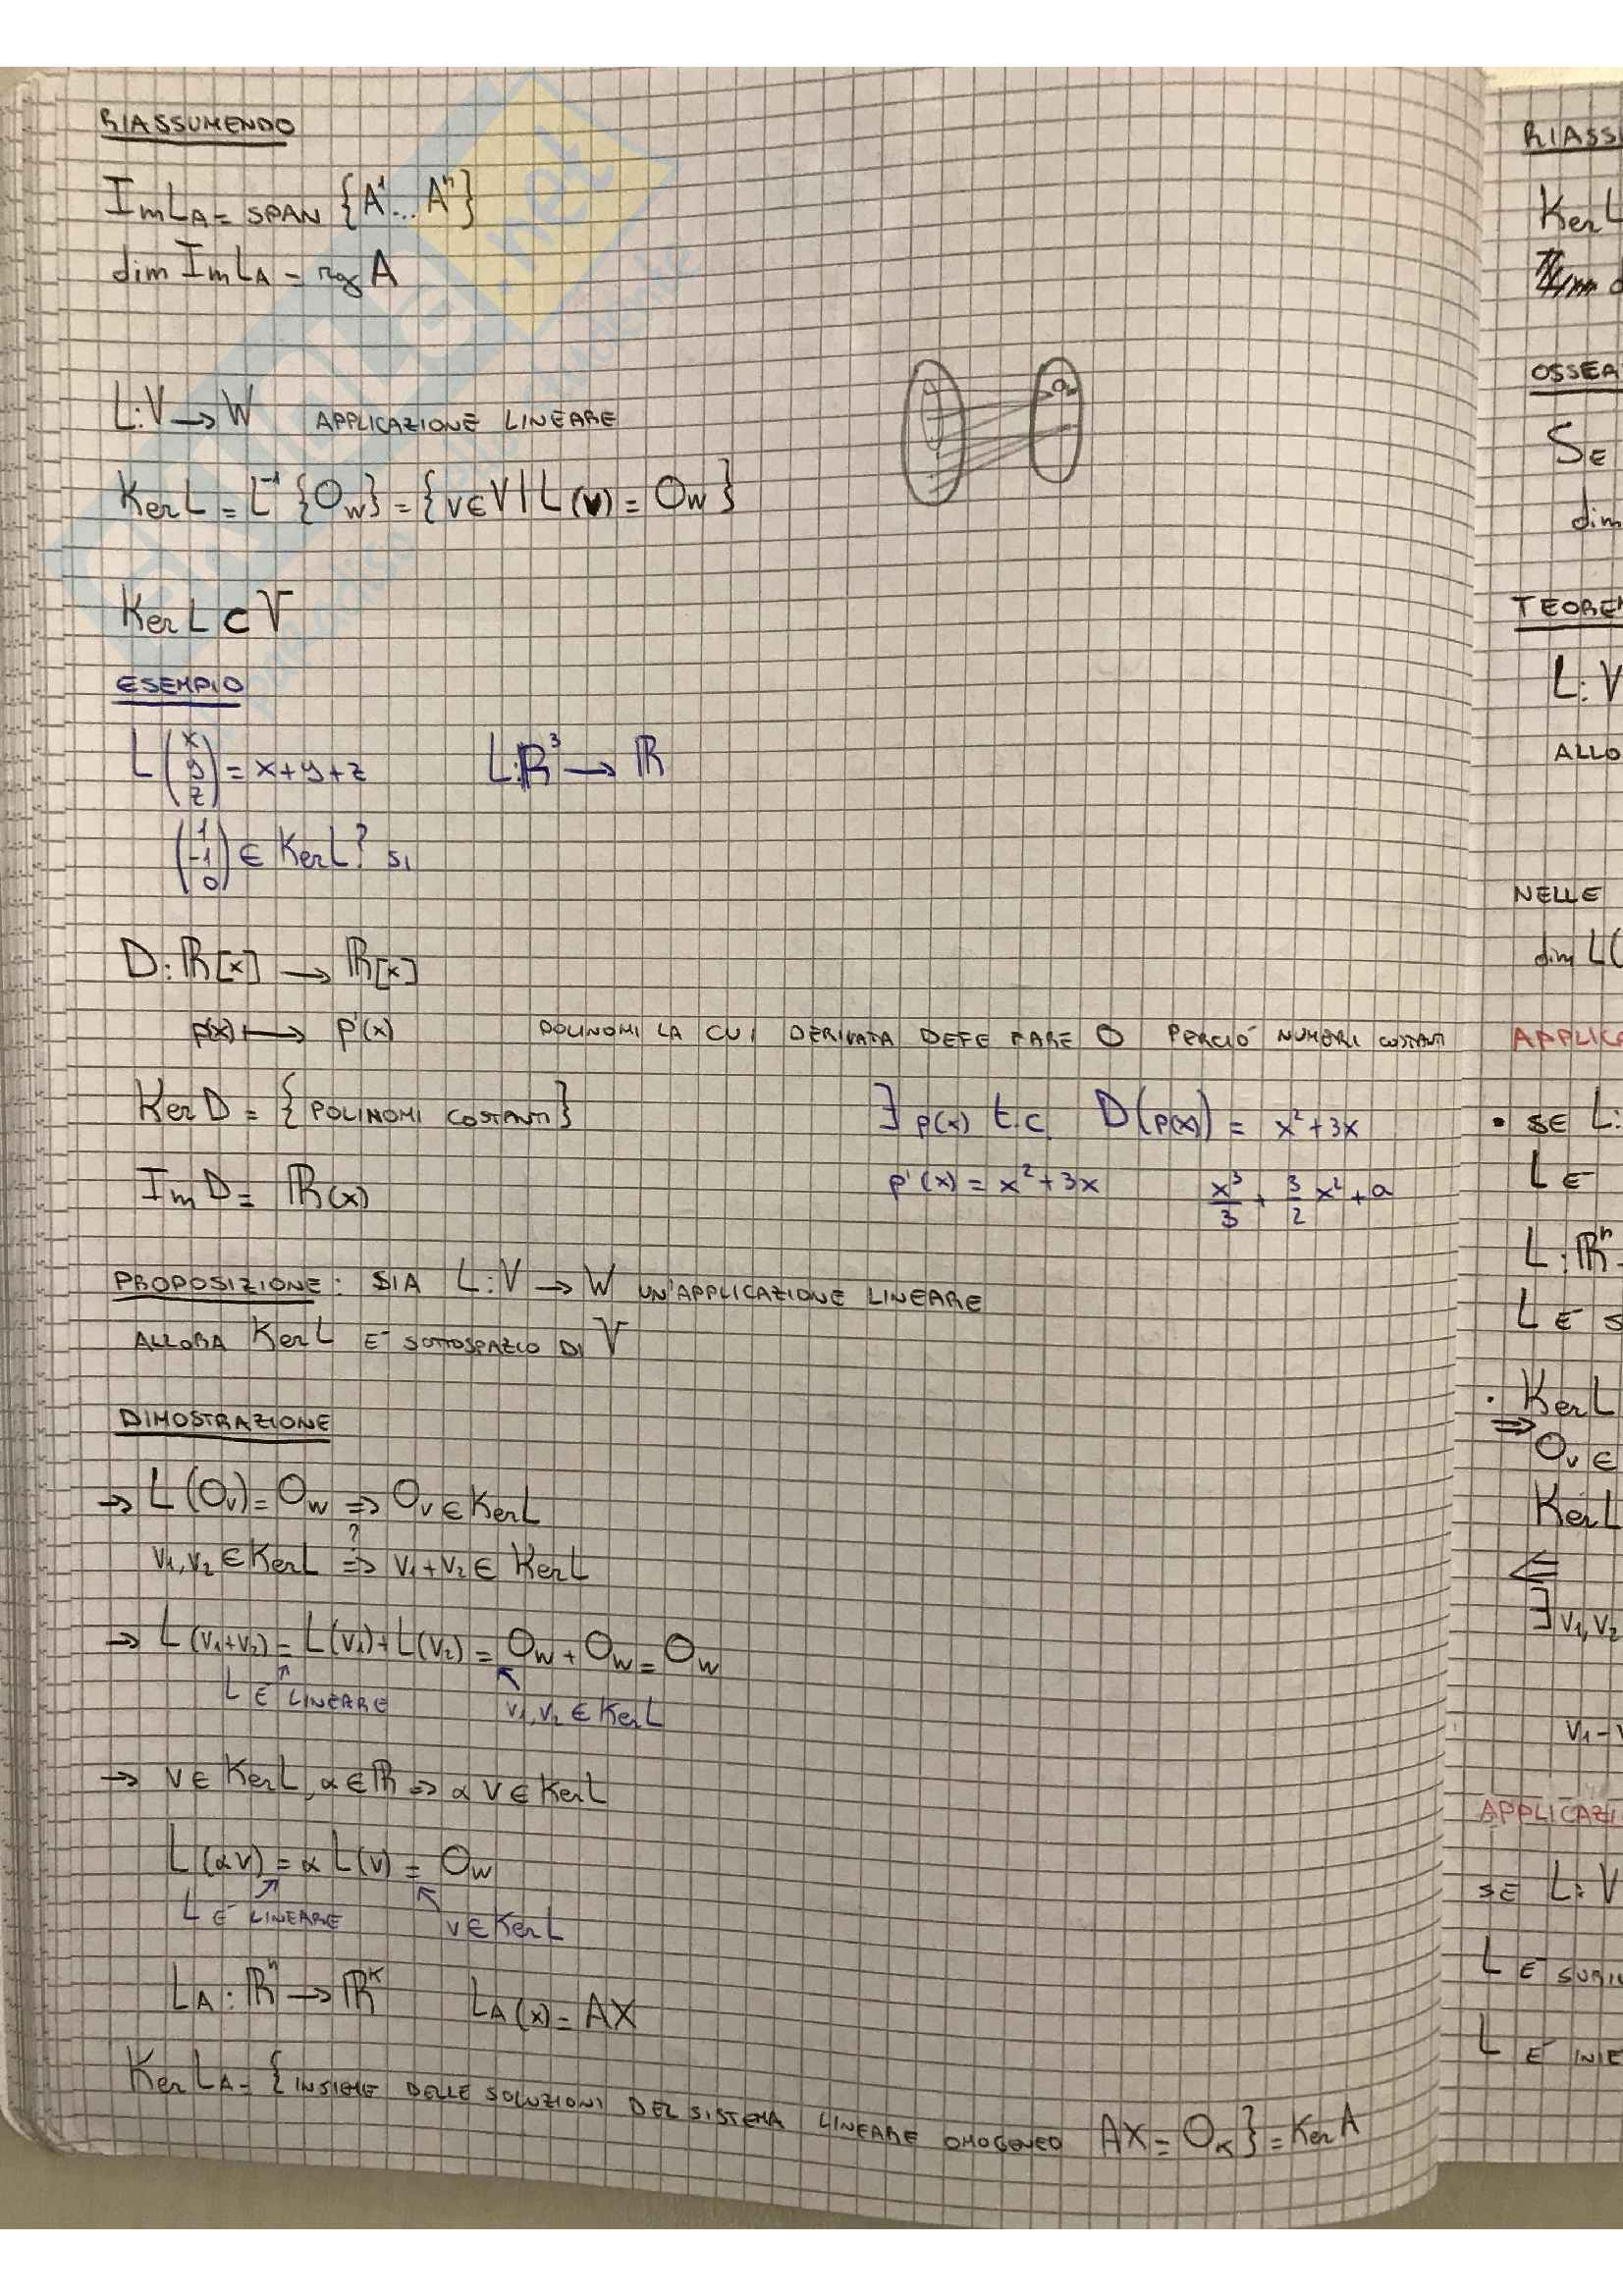 RIASSUMENDO
Im L_A = SPAN {A¹... Aⁿ}
dim Im L_A = rg A
L: V → W APPLICAZIONE LINEARE
Ker L = L⁻¹ {O_W} = {v ∈ V | L(v) = O_W}
Ker L ⊂ V
ESEMPIO
L(x y z) = x+y+z L: ℝ³ → ℝ
(1 -1 0) ∈ Ker L? SI
D: ℝ[x] → ℝ[x]
p(x) ↦ p'(x) POLINOMI LA CUI DERIVATA DEFE FARE O PERCIÒ NUMERI COSTANTI
Ker D = {POLINOMI COSTANTI} ∃ p(x) t.c. D(p(x)) = x²+3x
Im D = ℝ(x) p'(x) = x²+3x x³/3 + 3/2 x² + a
PROPOSIZIONE: SIA L: V → W UN'APPLICAZIONE LINEARE
ALLORA Ker L È SOTTOSPAZIO DI V
DIMOSTRAZIONE
→ L(O_V) = O_W ⇒ O_V ∈ Ker L
v₁, v₂ ∈ Ker L ?⇒ v₁+v₂ ∈ Ker L
→ L(v₁+v₂) = L(v₁)+L(v₂) = O_W + O_W = O_W
L È LINEARE v₁, v₂ ∈ Ker L
→ v ∈ Ker L, α ∈ ℝ ⇒ α v ∈ Ker L
L(αv) = α L(v) = O_W
L È LINEARE v ∈ Ker L
L_A: ℝⁿ → ℝᴷ L_A(x) = AX
Ker L_A = {INSIEME DELLE SOLUZIONI DEL SISTEMA LINEARE OMOGENEO AX = O_K} = Ker A
RIASS
Ker L
OSSER
SE
dim
TEOREM
L: V
ALLO
NELLE
dim L(
APPLICA
• SE L:
L È
L: ℝⁿ
L È S
• Ker L
⇒ O_V ∈
Ker L
⇐
∃ v₁, v₂
v₁ -
APPLICAZI
SE L: V
L È SURI
L È INIE